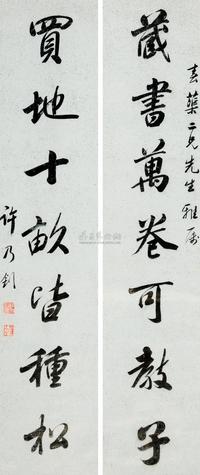 藏書萬卷可教子
買地十畝皆種松
二兄先生雅屬
許乃釗